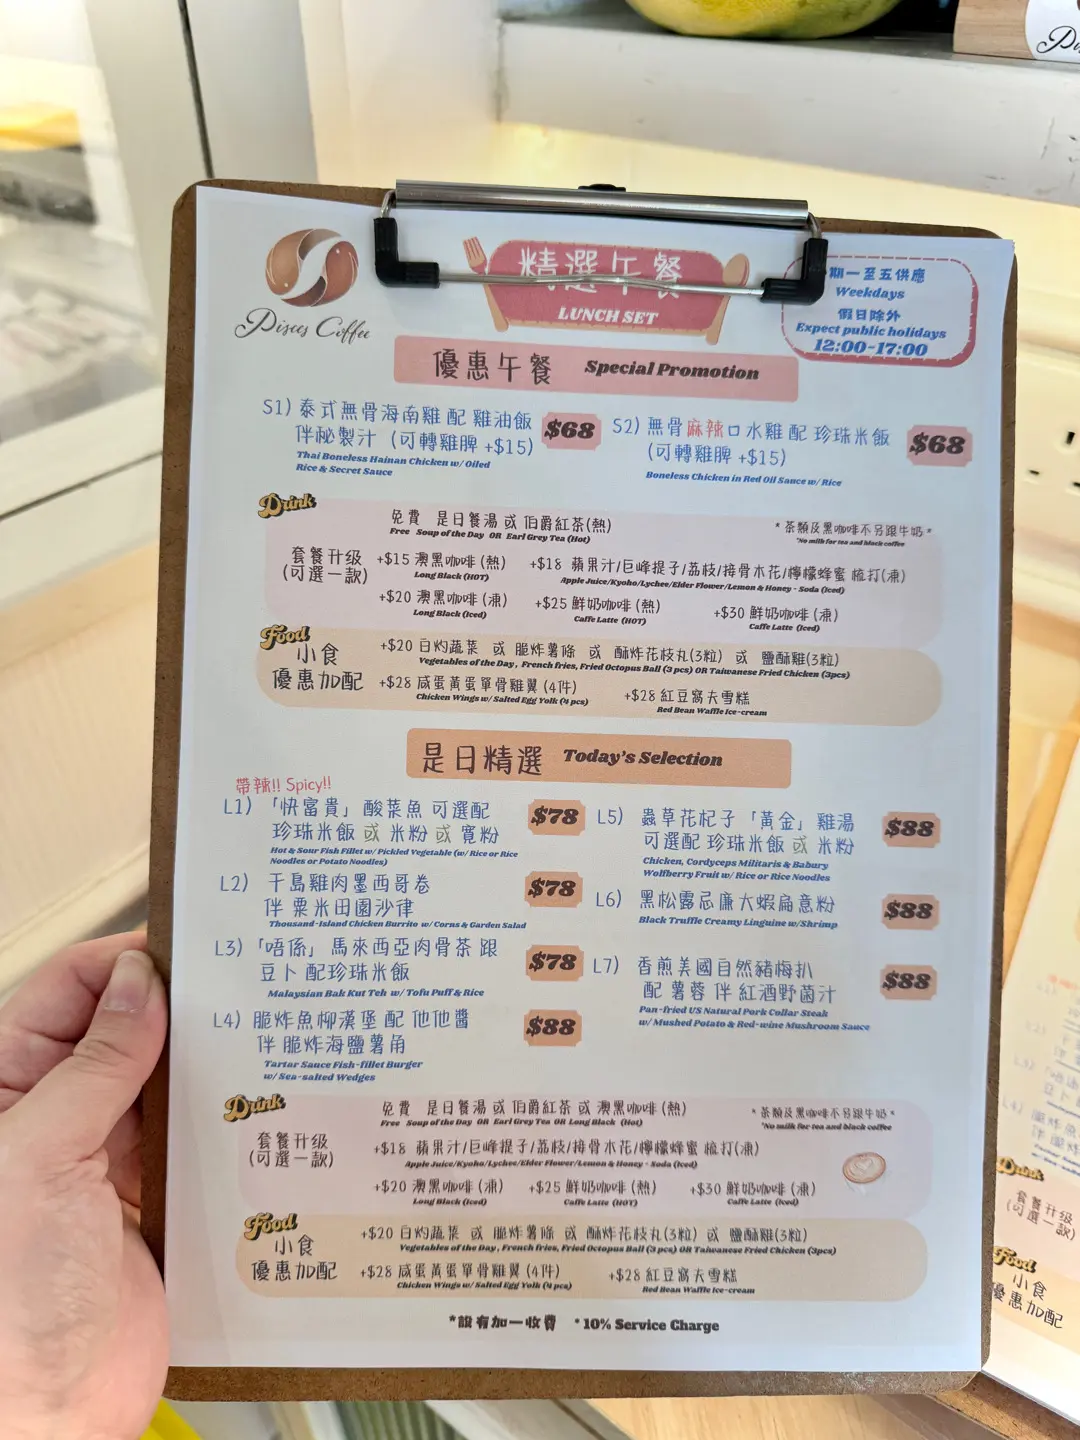 Pisces Coffee
精選午餐
LUNCH SET
期一至五供應
Weekdays
假日除外
Expect public holidays
12:00-17:00
優惠午餐 Special Promotion
S1) 泰式無骨海南雞 配 雞油飯
伴秘製汁 (可轉雞脾 +$15)
$68
Thai Boneless Hainan Chicken w/ Oiled
Rice & Secret Sauce
S2) 無骨麻辣口水雞 配 珍珠米飯
(可轉雞脾 +$15)
$68
Boneless Chicken in Red Oil Sauce w/ Rice
Drink
免費 是日餐湯 或 伯爵紅茶(熱)
Free Soup of the Day OR Earl Grey Tea (Hot)
* 茶類及黑咖啡不另跟牛奶 *
*No milk for tea and black coffee
套餐升级
(可選一款)
+$15 澳黑咖啡 (熱)
Long Black (HOT)
+$18 蘋果汁/巨峰提子/荔枝/接骨木花/檸檬蜂蜜 梳打(凍)
Apple Juice/Kyoho/Lychee/Elder Flower/Lemon & Honey - Soda (Iced)
+$20 澳黑咖啡 (凍)
Long Black (Iced)
+$25 鮮奶咖啡 (熱)
Caffe Latte (HOT)
+$30 鮮奶咖啡 (凍)
Caffe Latte (Iced)
Food
小食
優惠加配
+$20 白灼蔬菜 或 脆炸薯條 或 酥炸花枝丸(3粒) 或 鹽酥雞(3粒)
Vegetables of the Day, French fries, Fried Octopus Ball (3 pcs) OR Taiwanese Fried Chicken (3pcs)
+$28 咸蛋黃蛋單骨雞翼 (4件)
Chicken Wings w/ Salted Egg Yolk (4 pcs)
+$28 紅豆窩夫雪糕
Red Bean Waffle Ice-cream
是日精選 Today's Selection
帶辣!! Spicy!!
L1) 「快富貴」酸菜魚 可選配
珍珠米飯 或 米粉 或 寬粉
$78
Hot & Sour Fish Fillet w/ Pickled Vegetable (w/ Rice or Rice
Noodles or Potato Noodles)
L2) 千島雞肉墨西哥卷
伴 粟米田園沙律
$78
Thousand-Island Chicken Burrito w/ Corns & Garden Salad
L3) 「唔係」馬來西亞肉骨茶 跟
豆卜 配珍珠米飯
$78
Malaysian Bak Kut Teh w/ Tofu Puff & Rice
L4) 脆炸魚柳漢堡 配 他他醬
伴 脆炸海鹽薯角
$88
Tartar Sauce Fish-fillet Burger
w/ Sea-salted Wedges
L5) 蟲草花杞子「黃金」雞湯
可選配 珍珠米飯 或 米粉
$88
Chicken, Cordyceps Militaris & Babury
Wolfberry Fruit w/ Rice or Rice Noodles
L6) 黑松露忌廉大蝦扁意粉
$88
Black Truffle Creamy Linguine w/Shrimp
L7) 香煎美國自然豬梅扒
配 薯蓉 伴 紅酒野菌汁
$88
Pan-fried US Natural Pork Collar Steak
w/ Mushed Potato & Red-wine Mushroom Sauce
Drink
免費 是日餐湯 或 伯爵紅茶 或 澳黑咖啡 (熱)
Free Soup of the Day OR Earl Grey Tea OR Long Black (Hot)
* 茶類及黑咖啡不另跟牛奶 *
*No milk for tea and black coffee
套餐升级
(可選一款)
+$18 蘋果汁/巨峰提子/荔枝/接骨木花/檸檬蜂蜜 梳打(凍)
Apple Juice/Kyoho/Lychee/Elder Flower/Lemon & Honey - Soda (Iced)
+$20 澳黑咖啡 (凍)
Long Black (Iced)
+$25 鮮奶咖啡 (熱)
Caffe Latte (HOT)
+$30 鮮奶咖啡 (凍)
Caffe Latte (Iced)
Food
小食
優惠加配
+$20 白灼蔬菜 或 脆炸薯條 或 酥炸花枝丸(3粒) 或 鹽酥雞(3粒)
Vegetables of the Day, French fries, Fried Octopus Ball (3 pcs) OR Taiwanese Fried Chicken (3pcs)
+$28 咸蛋黃蛋單骨雞翼 (4件)
Chicken Wings w/ Salted Egg Yolk (4 pcs)
+$28 紅豆窩夫雪糕
Red Bean Waffle Ice-cream
*設有加一收費 *10% Service Charge
Drink
套餐升级
(可選一款)
Food
小食
優惠加配